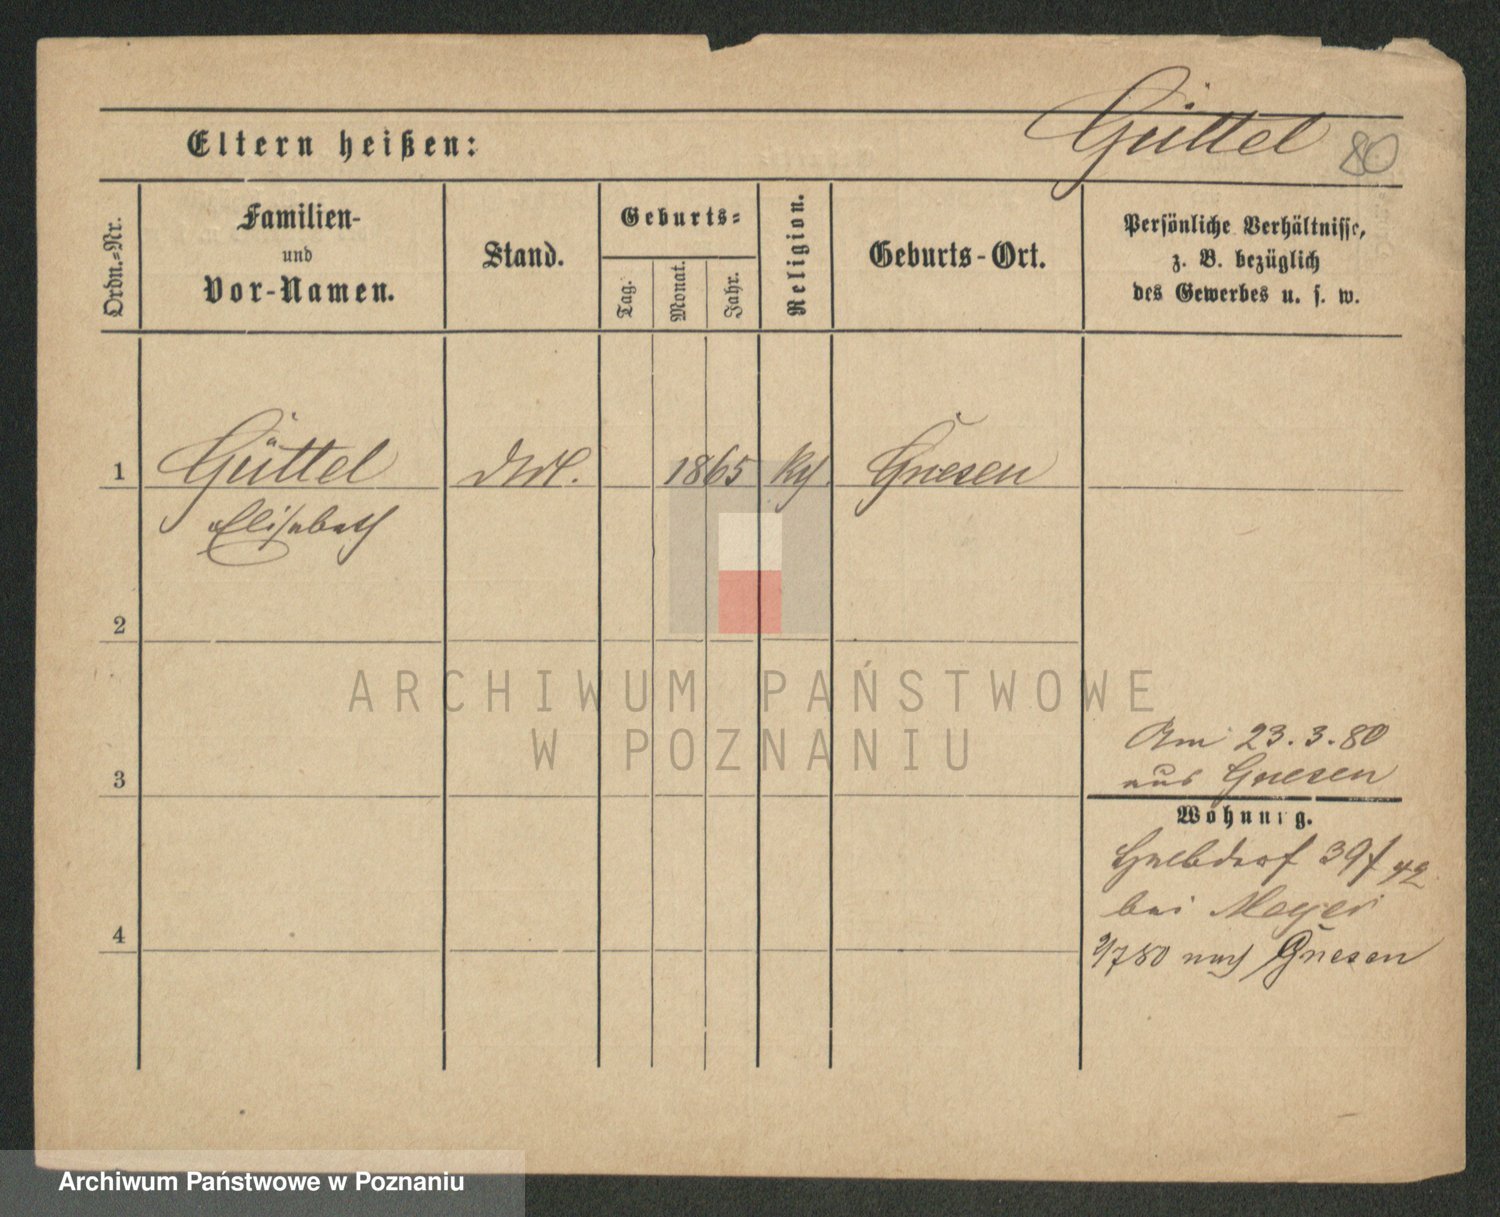 Güttel 80
Eltern heißen:
Ordn.-Nr.
Familien-
und
Vor-Namen.
Stand.
Geburts-
Tag.
Monat.
Jahr.
Religion.
Geburts-Ort.
Persönliche Verhältnisse,
z. B. bezüglich
des Gewerbes u. s. w.
1 Güttel 1865 Gnesen
Elisabeth
2
3
4
Am 23.3.80
aus Gnesen
Wohnung.
Halbdorf 39
bei Meyer
2/7 80 nach Gnesen
ARCHIWUM PAŃSTWOWE
W POZNANIU
Archiwum Państwowe w Poznaniu